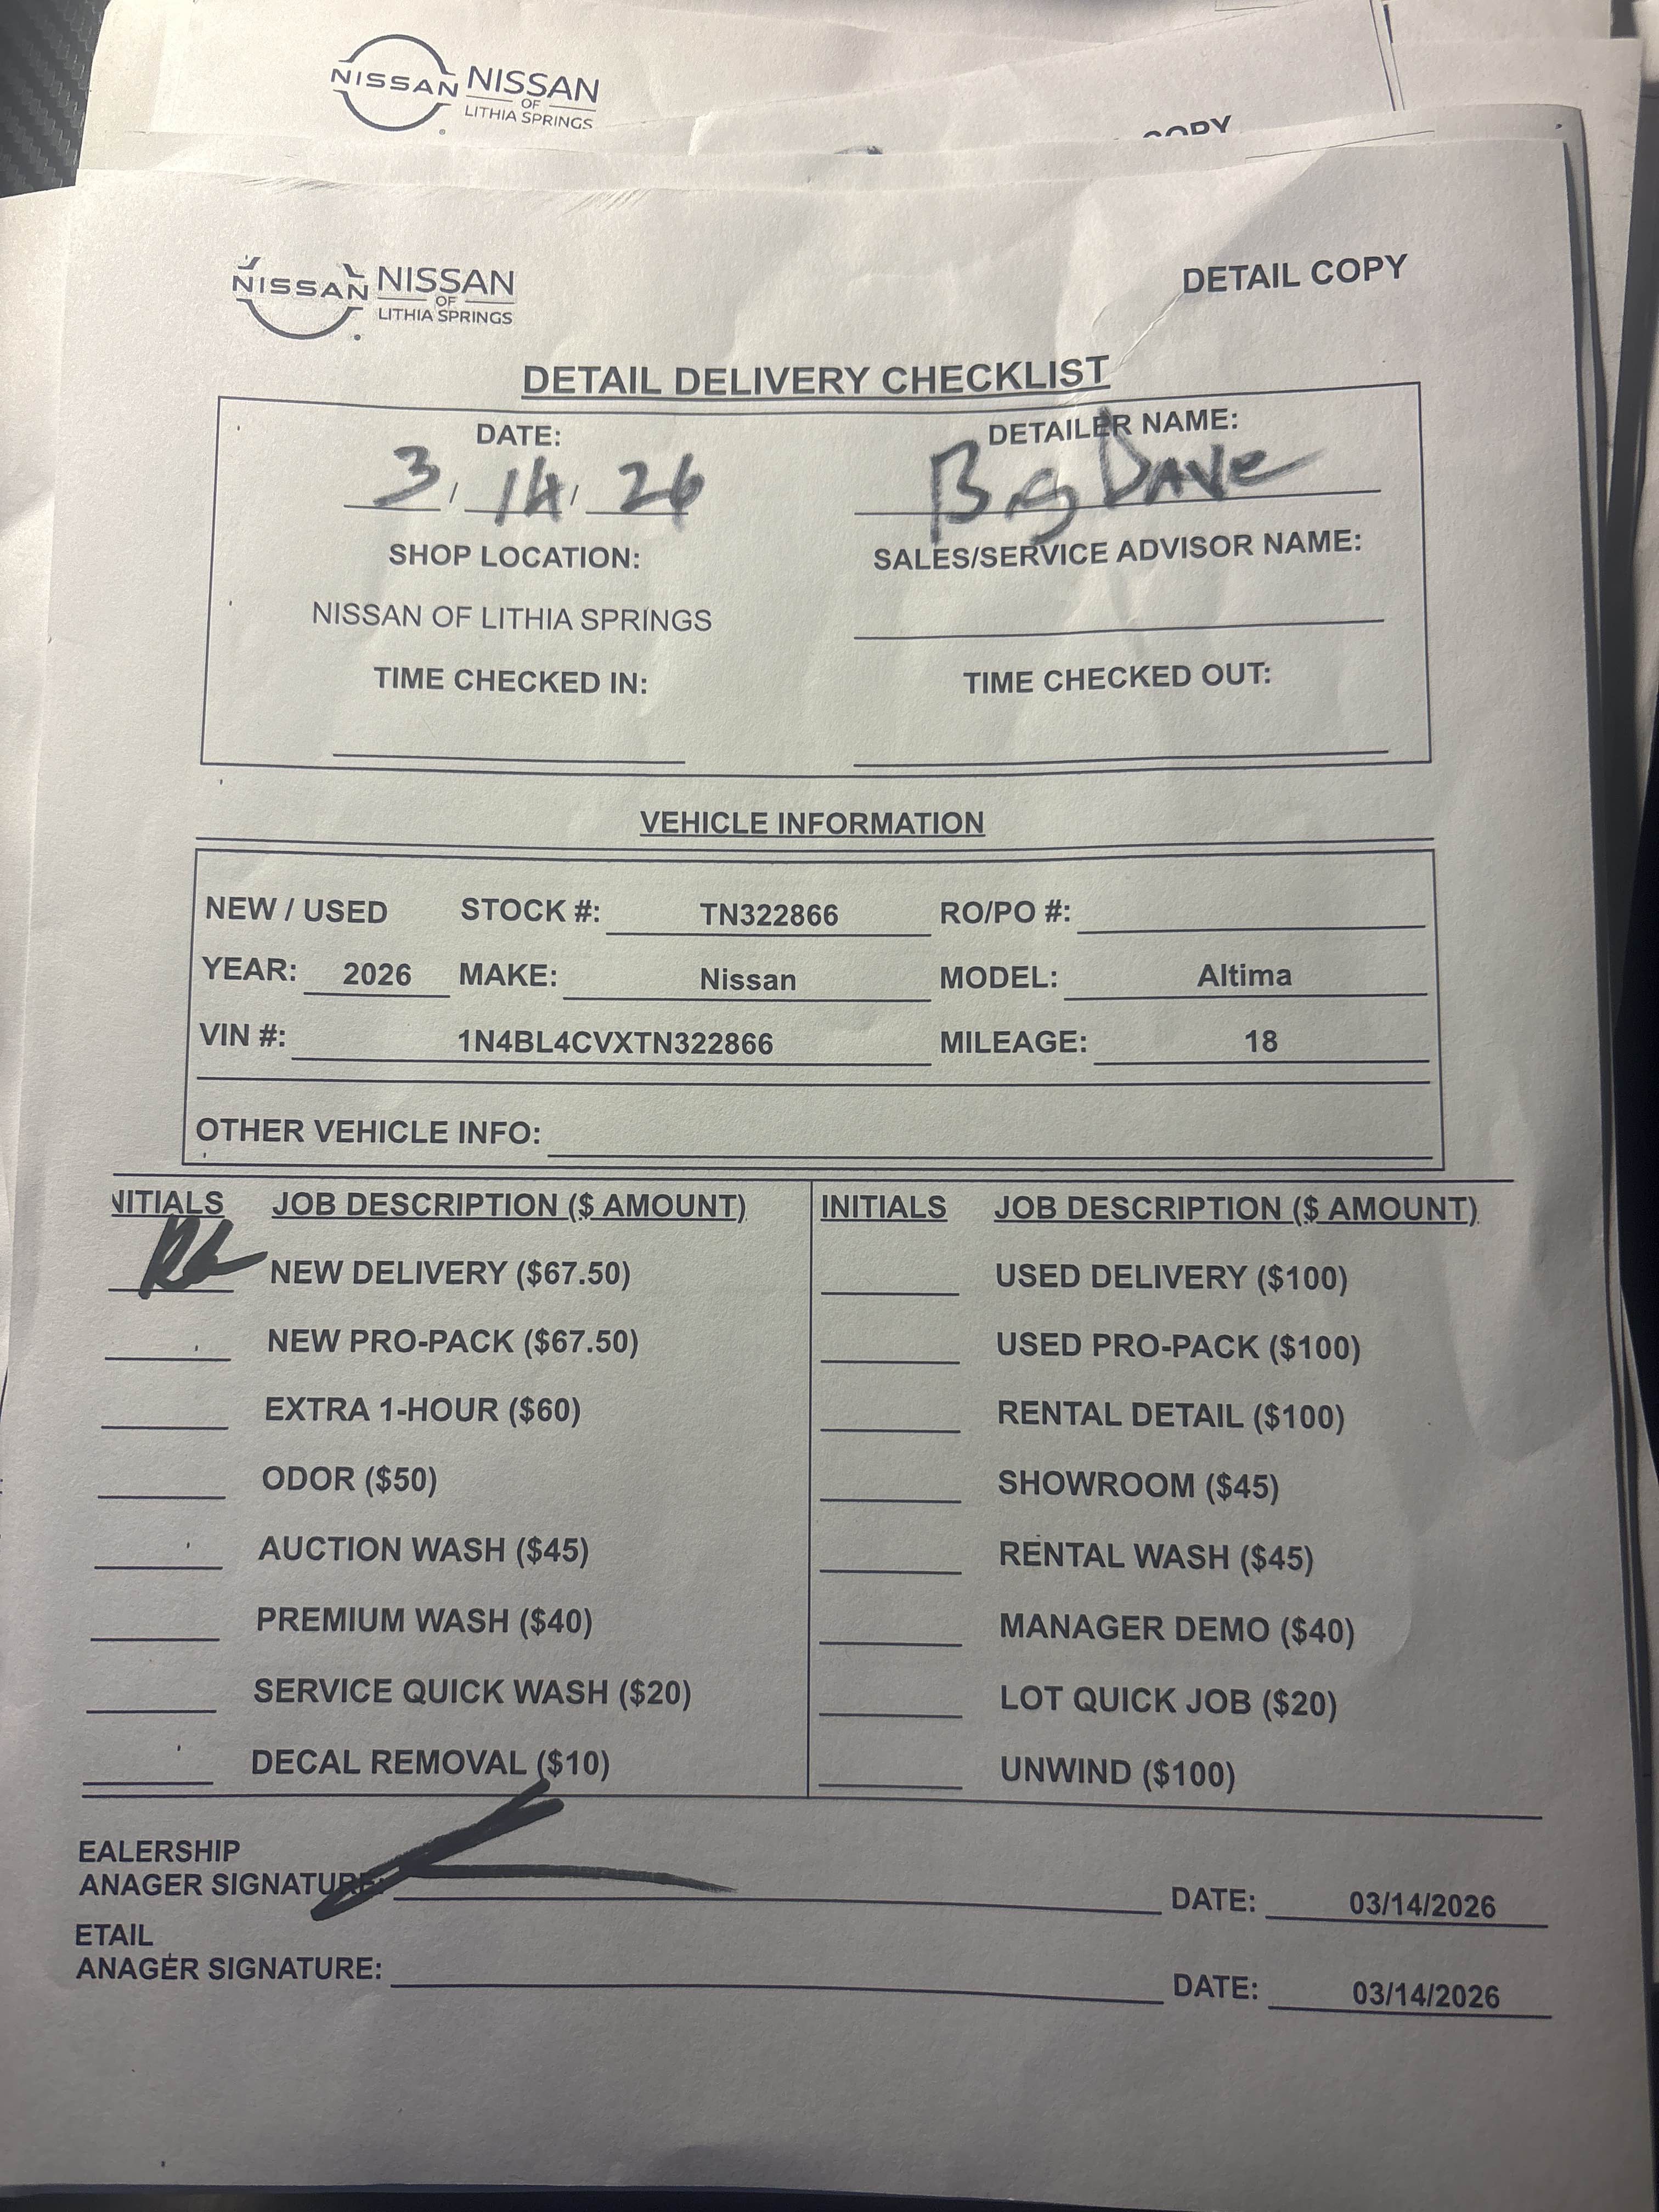 NISSAN NISSAN
OF
LITHIA SPRINGS
COPY
NISSAN NISSAN
OF
LITHIA SPRINGS
DETAIL COPY
DETAIL DELIVERY CHECKLIST
DATE: DETAILER NAME:
3 / 14 / 26 Big Dave
SHOP LOCATION: SALES/SERVICE ADVISOR NAME:
NISSAN OF LITHIA SPRINGS
TIME CHECKED IN: TIME CHECKED OUT:
VEHICLE INFORMATION
NEW / USED STOCK #: TN322866 RO/PO #:
YEAR: 2026 MAKE: Nissan MODEL: Altima
VIN #: 1N4BL4CVXTN322866 MILEAGE: 18
OTHER VEHICLE INFO:
NITIALS JOB DESCRIPTION ($ AMOUNT) INITIALS JOB DESCRIPTION ($ AMOUNT)
NEW DELIVERY ($67.50) USED DELIVERY ($100)
NEW PRO-PACK ($67.50) USED PRO-PACK ($100)
EXTRA 1-HOUR ($60) RENTAL DETAIL ($100)
ODOR ($50) SHOWROOM ($45)
AUCTION WASH ($45) RENTAL WASH ($45)
PREMIUM WASH ($40) MANAGER DEMO ($40)
SERVICE QUICK WASH ($20) LOT QUICK JOB ($20)
DECAL REMOVAL ($10) UNWIND ($100)
EALERSHIP
ANAGER SIGNATURE: DATE: 03/14/2026
ETAIL
ANAGER SIGNATURE: DATE: 03/14/2026